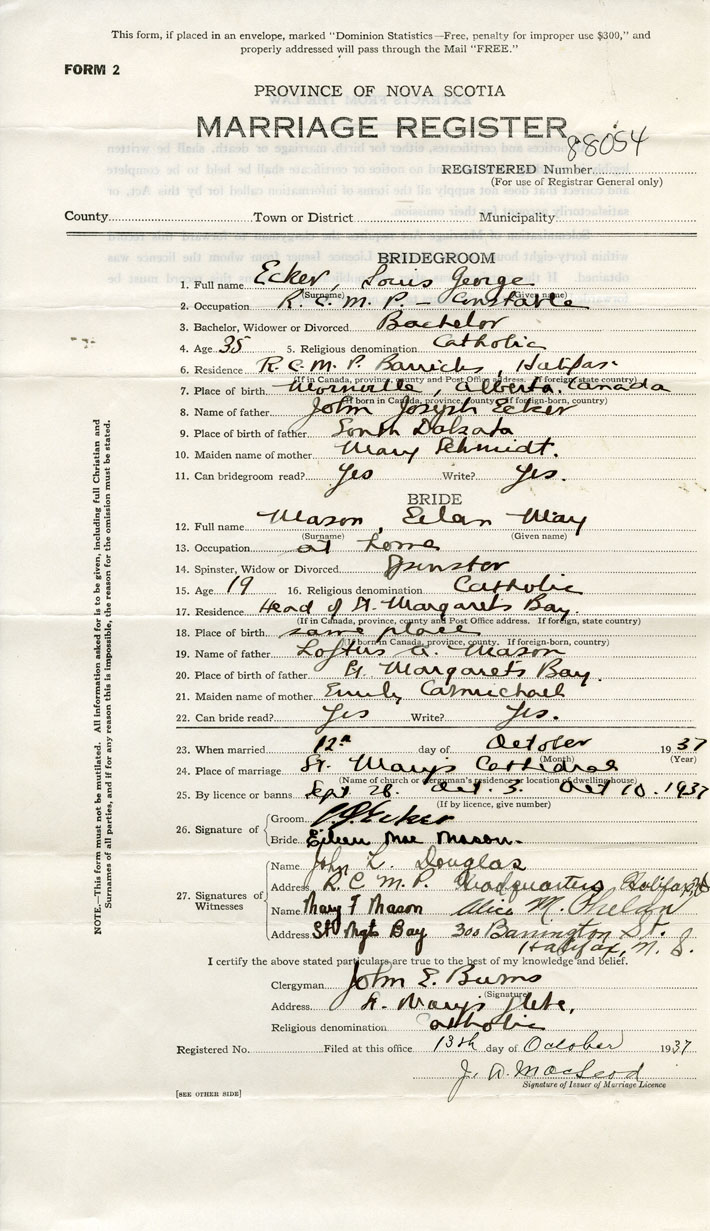 This form, if placed in an envelope, marked "Dominion Statistics—Free, penalty for improper use $300," and
properly addressed will pass through the Mail "FREE."
FORM 2
PROVINCE OF NOVA SCOTIA
MARRIAGE REGISTER
88054
REGISTERED Number
(For use of Registrar General only)
County Town or District Municipality
BRIDEGROOM
1. Full name Ecker, Louis George
(Surname) (Given name)
2. Occupation R.C.M.P. - Constable
3. Bachelor, Widower or Divorced Bachelor
4. Age 35 5. Religious denomination Catholic
6. Residence R.C.M.P. Barricks, Halifax.
(If in Canada, province, county and Post Office address. If foreign, state country)
7. Place of birth Morinville, Alberta, Canada
(If born in Canada, province, county. If foreign-born, country)
8. Name of father John Joseph Ecker
9. Place of birth of father South Dakata
10. Maiden name of mother Mary Schmidt.
11. Can bridegroom read? Yes Write? Yes.
BRIDE
12. Full name Mason, Eilan May
(Surname) (Given name)
13. Occupation at home
14. Spinster, Widow or Divorced Spinster
15. Age 19 16. Religious denomination Catholic
17. Residence Head of St. Margarets Bay.
(If in Canada, province, county and Post Office address. If foreign, state country)
18. Place of birth same place
(If born in Canada, province, county. If foreign-born, country)
19. Name of father Loftus A. Mason
20. Place of birth of father St. Margarets Bay.
21. Maiden name of mother Emily Carmichael
22. Can bride read? Yes Write? Yes.
23. When married 12th day of October 1937
(Month) (Year)
24. Place of marriage St. Marys Cathedral
(Name of church or clergyman's residence or location of dwelling house)
25. By licence or banns Sept 26. Oct. 3. Oct 10. 1937
(If by licence, give number)
26. Signature of
Groom Ecker
Bride Eileen Mae Mason.
27. Signatures of Witnesses
Name John L. Douglas
Address R.C.M.P. Headquarters Halifax, N.S.
Name Mary F Mason Alice M. Phelan
Address St. Mgts Bay 300 Barrington St.
Halifax, N.S.
I certify the above stated particulars are true to the best of my knowledge and belief.
Clergyman John E. Burns
(Signature)
Address St. Marys Glebe,
Religious denomination Catholic
Registered No. Filed at this office 13th day of October 1937
J. D. MacLeod
Signature of Issuer of Marriage Licence
[SEE OTHER SIDE]
NOTE.—This form must not be mutilated. All information asked for is to be given, including full Christian and
Surnames of all parties, and if for any reason this is impossible, the reason for the omission must be stated.